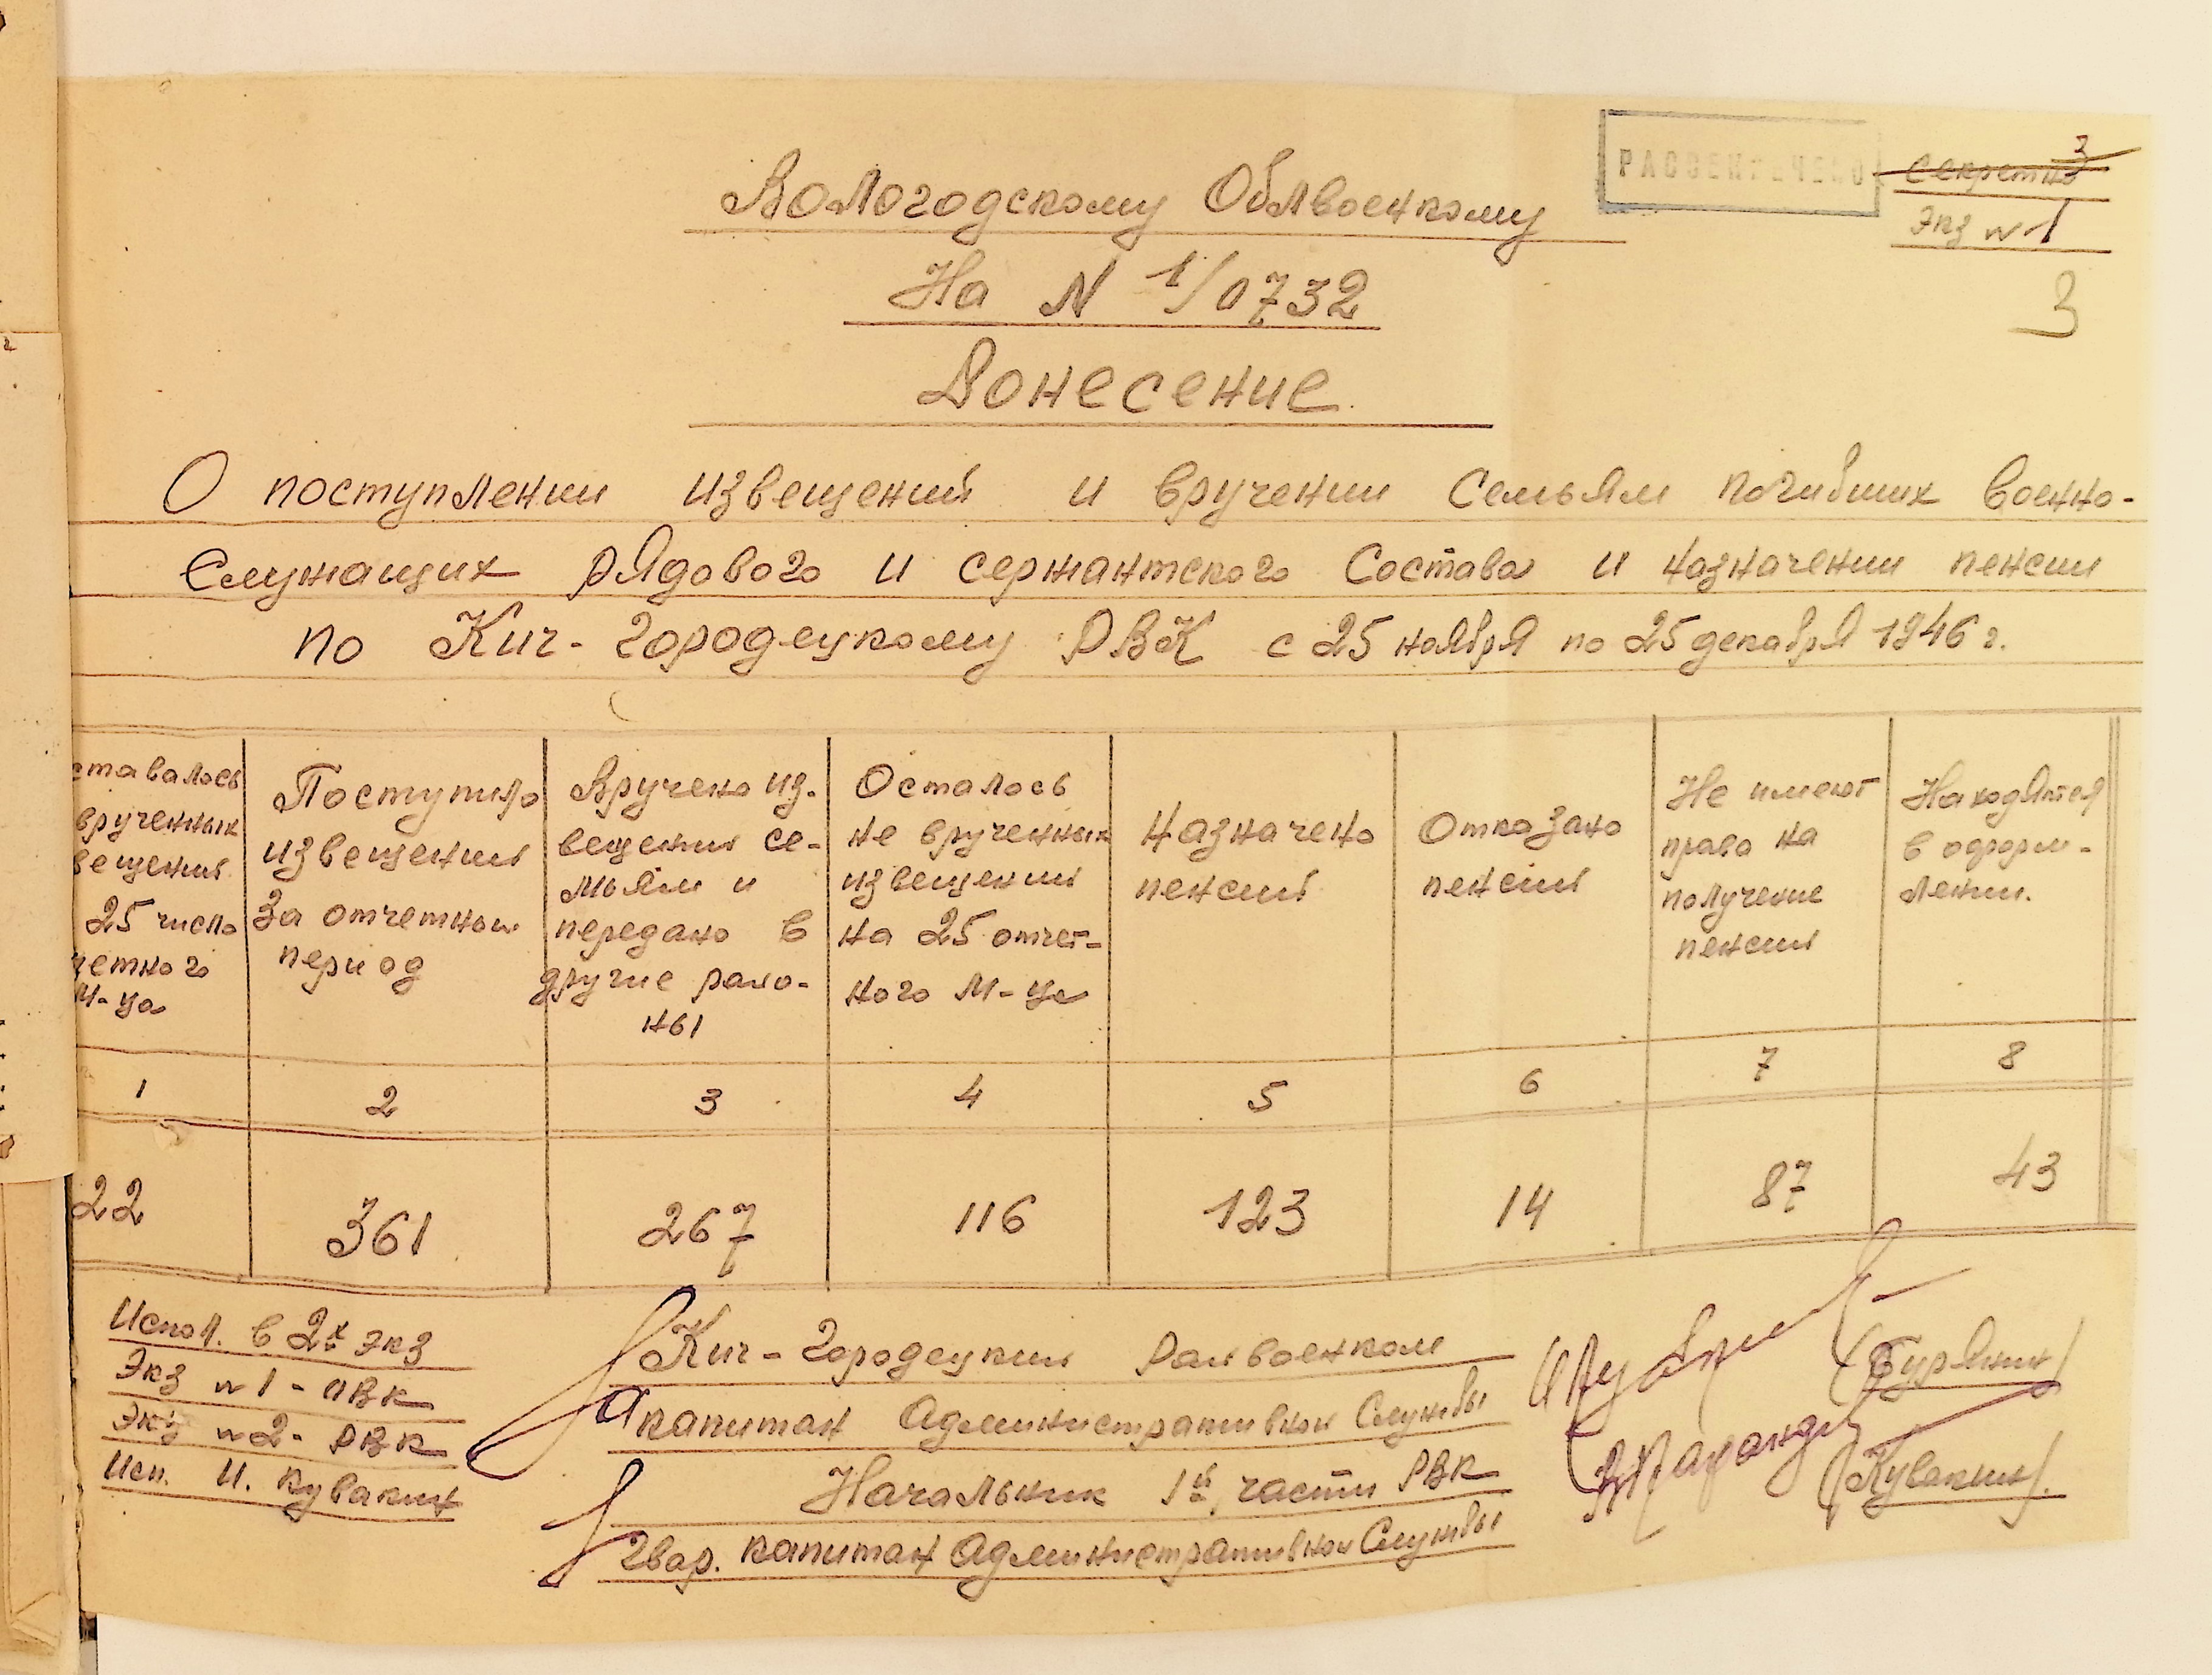 РАССЕКРЕЧЕНО
Секретно
3
Экз № 1
3
Вологодскому Облвоенкому
На N 1/0732
Донесение
О поступлении извещений и вручении Семьям погибших военно-
Служащих рядового и сержантского Состава и назначении пенсии
по Кич-Городецкому РВК с 25 ноября по 25 декабря 1946 г.
ставалось
врученных
вещения
25 число
четного
м-ца
Поступило
извещения
За отчетный
период
Вручено из-
вещения се-
мьям и
передано в
другие райо-
ны
Осталось
не врученных
извещения
на 25 отчет-
ного м-ца
Назначено
пенсии
Отказано
пенсии
Не имеют
право на
получение
пенсии
Находятся
в оформ-
лении.
1 2 3 4 5 6 7 8
22 361 267 116 123 14 87 43
Испол. в 2х экз
Экз №1 - ОВК
Экз №2 - РВК
Исп. И. Кувакин
Кич-Городецкий Райвоенком
капитан Административной Службы
(Бурянин)
Начальник 1й части РВК
Гвар. капитан Административной Службы
(Кувакин).